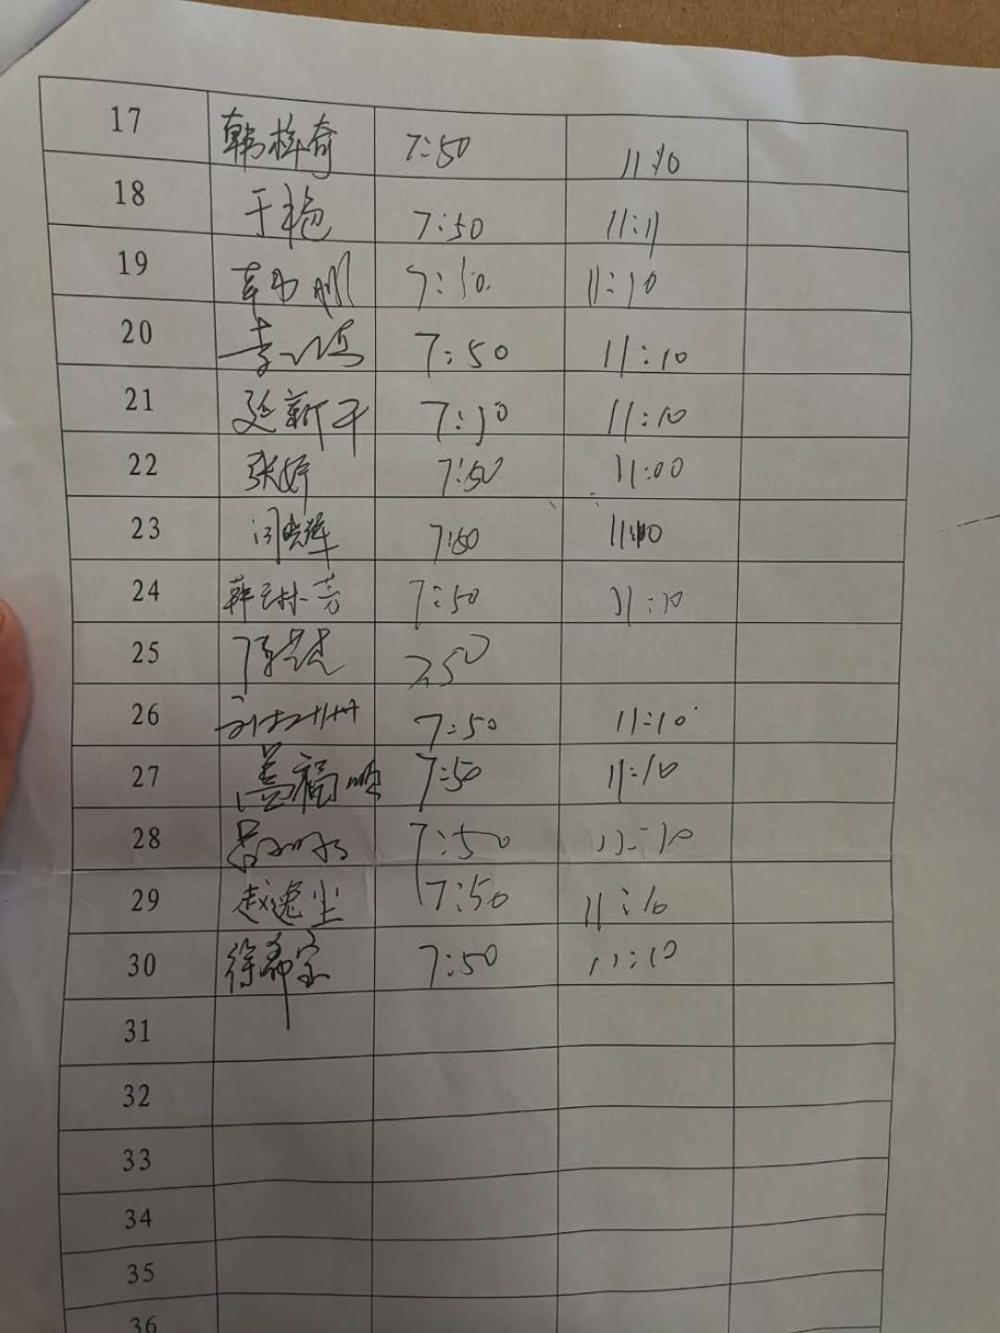 17 韩梓奇 7:50 11:10
18 于艳 7:50 11:11
19 7:50 11:10
20 7:50 11:10
21 7:50 11:10
22 张妍 7:50 11:00
23 闫晓辉 7:50 11:10
24 韩林芳 7:50 11:10
25 7:50
26 7:50 11:10
27 盖福顺 7:50 11:10
28 7:50 11:10
29 赵逸尘 7:50 11:10
30 徐希宝 7:50 11:10
31
32
33
34
35
36